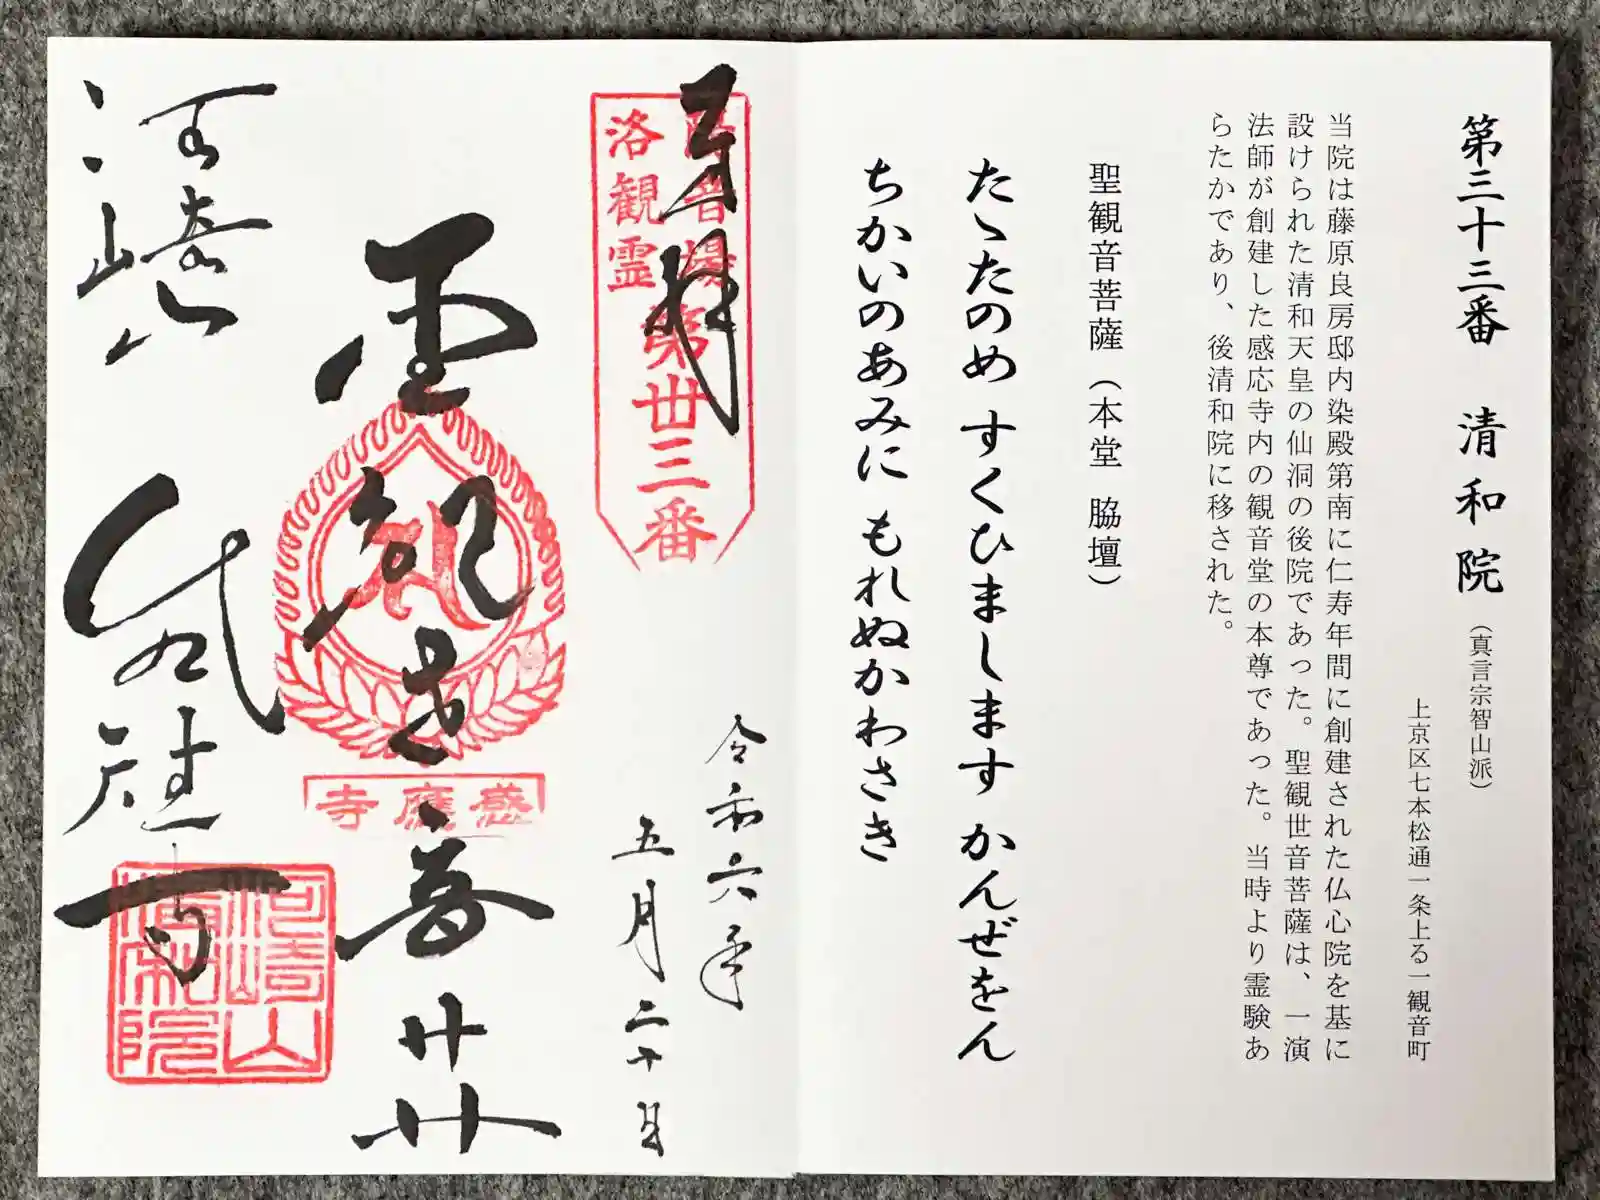 第三十三番　清和院（真言宗智山派）
上京区七本松通一条上る一観音町
当院は藤原良房邸内染殿第南に仁寿年間に創建された仏心院を基に
設けられた清和天皇の仙洞の後院であった。聖観世音菩薩は、一演
法師が創建した感応寺内の観音堂の本尊であった。当時より霊験あ
らたかであり、後清和院に移された。
聖観音菩薩（本堂　脇壇）
たゝたのめ すくひまします かんぜをん
ちかいのあみに もれぬかわさき
奉拝
洛陽
観音
霊場
第卅三番
令和六年
五月二十日
聖観世音
感應寺
河崎
清和院
河崎山
清和院